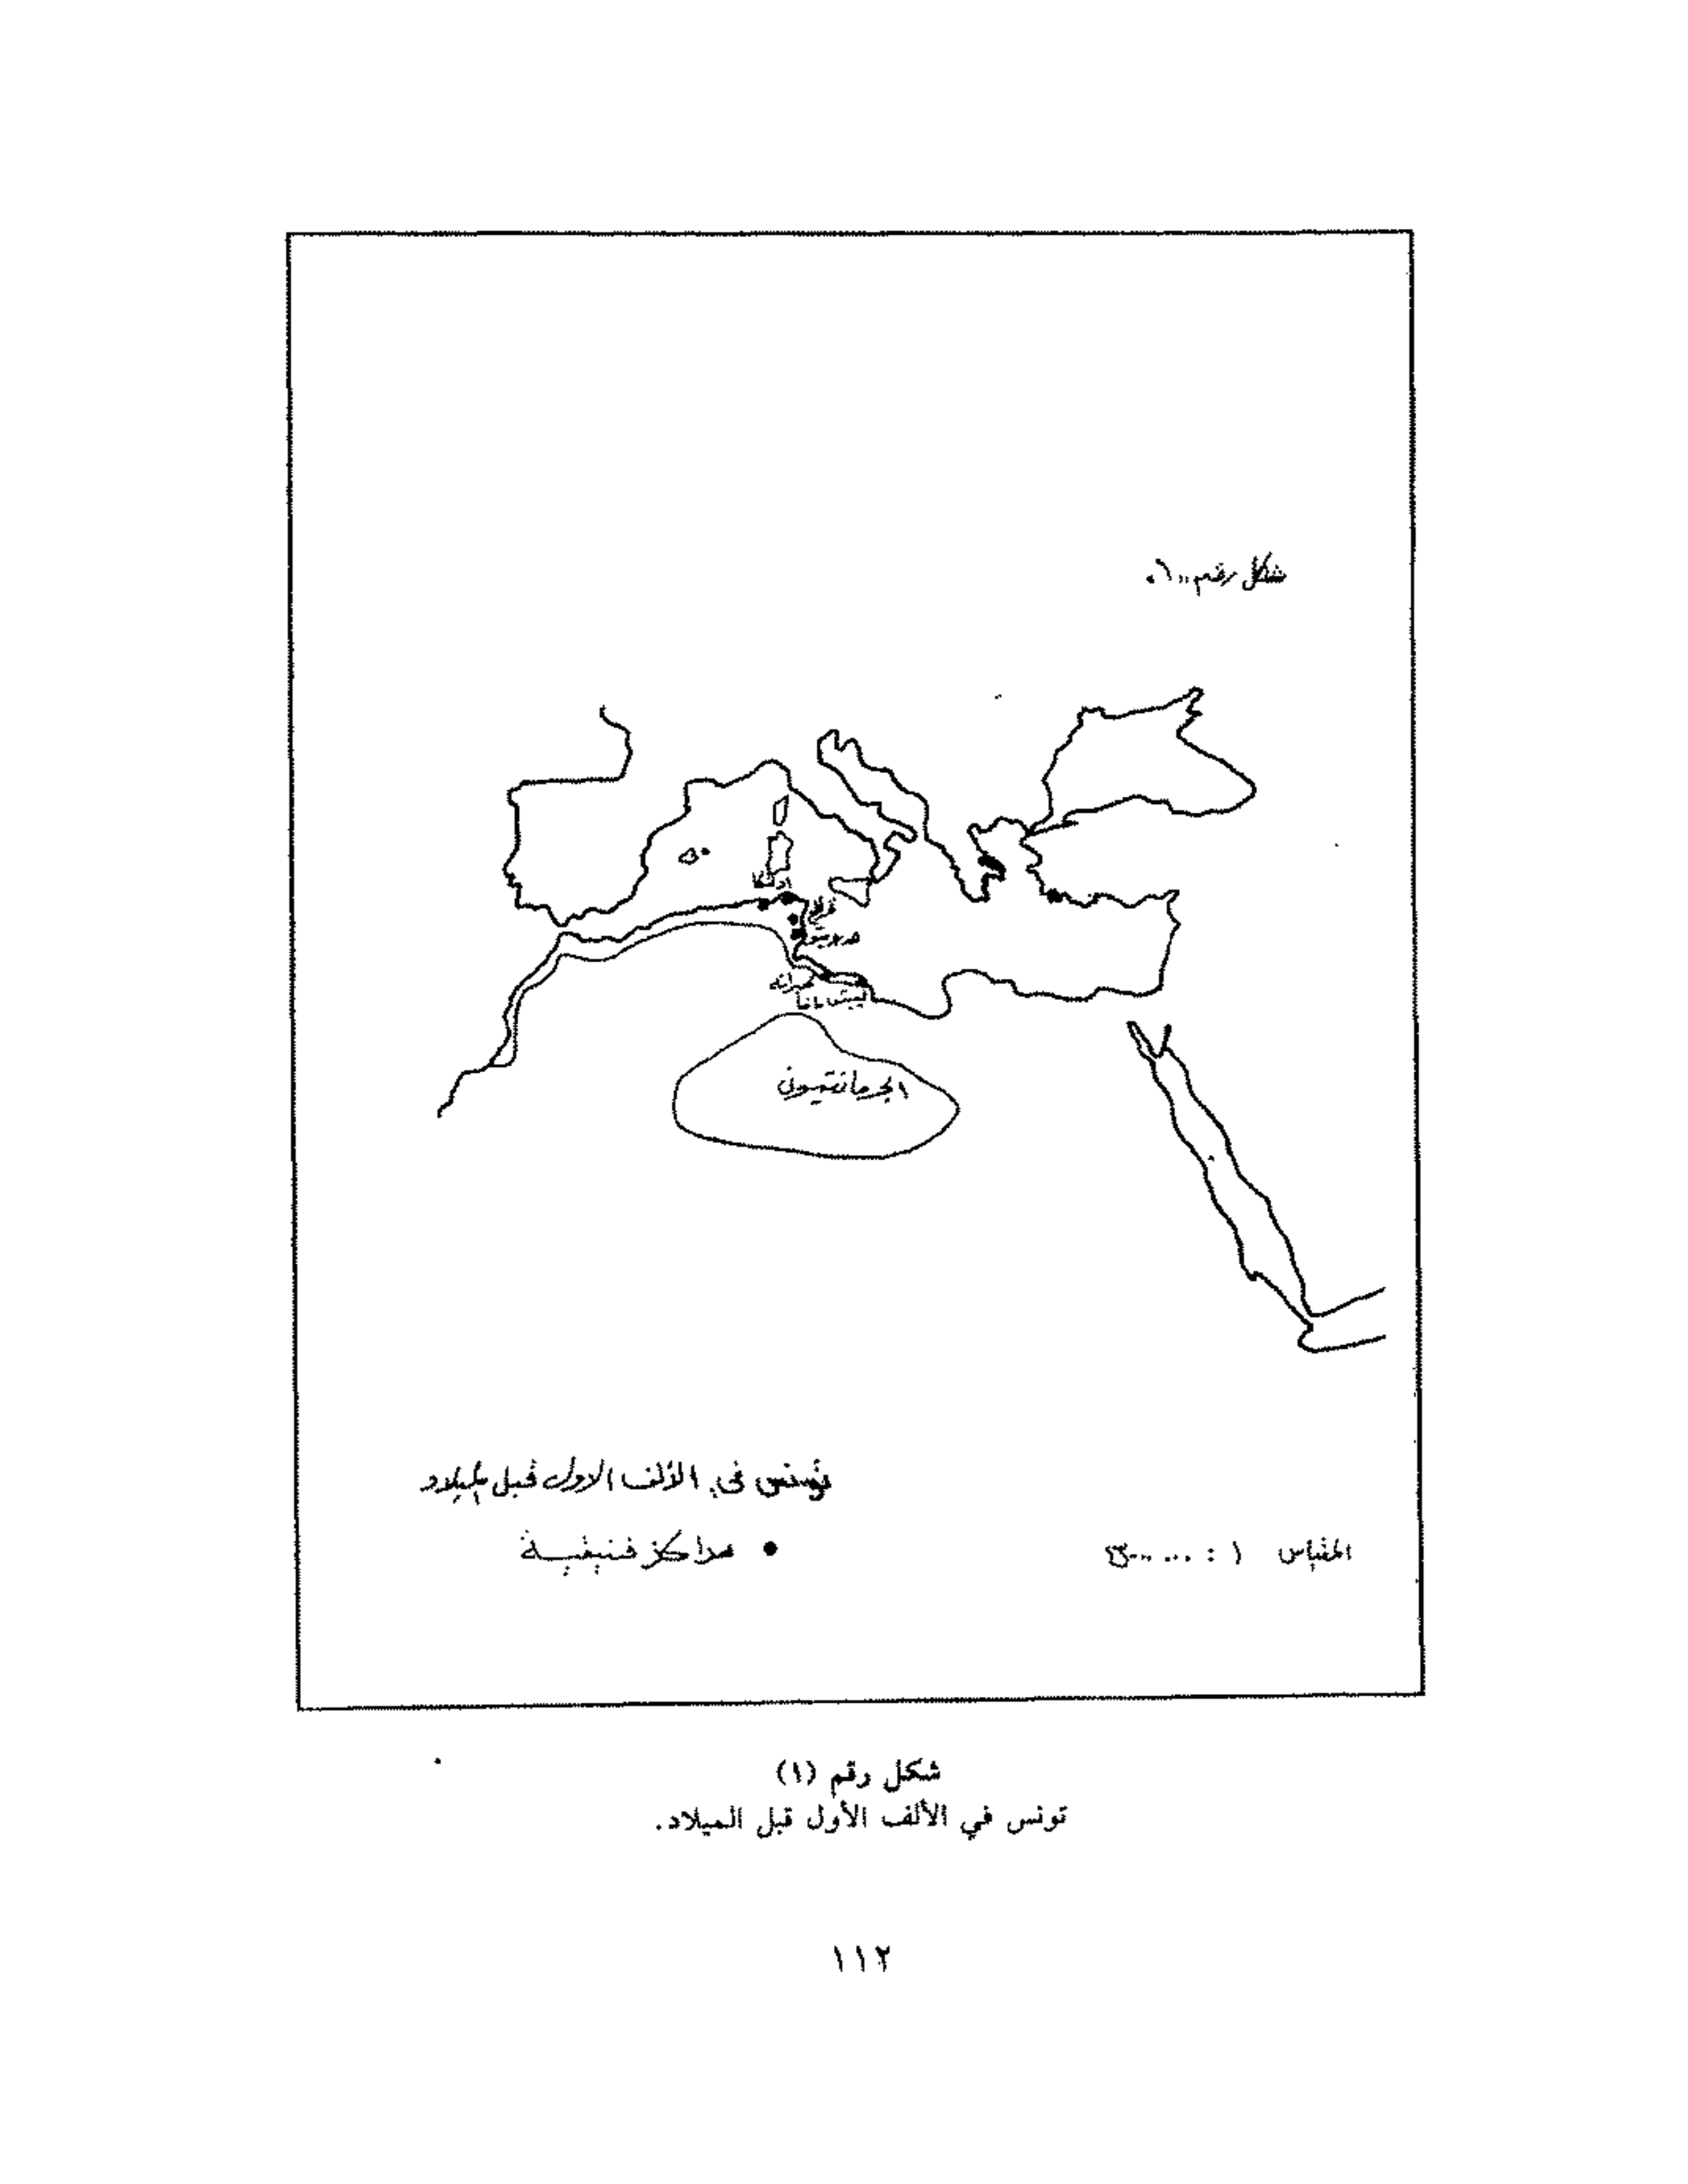 شكل رقم "١"
اوتيكا
هدرومتوم
صبراته
الجرمانتيون
تونس في الألف الاول قبل الميلاد
مراكز فنيقية
المقياس ١ :
شكل رقم (١)
تونس في الألف الأول قبل الميلاد.
١١٢